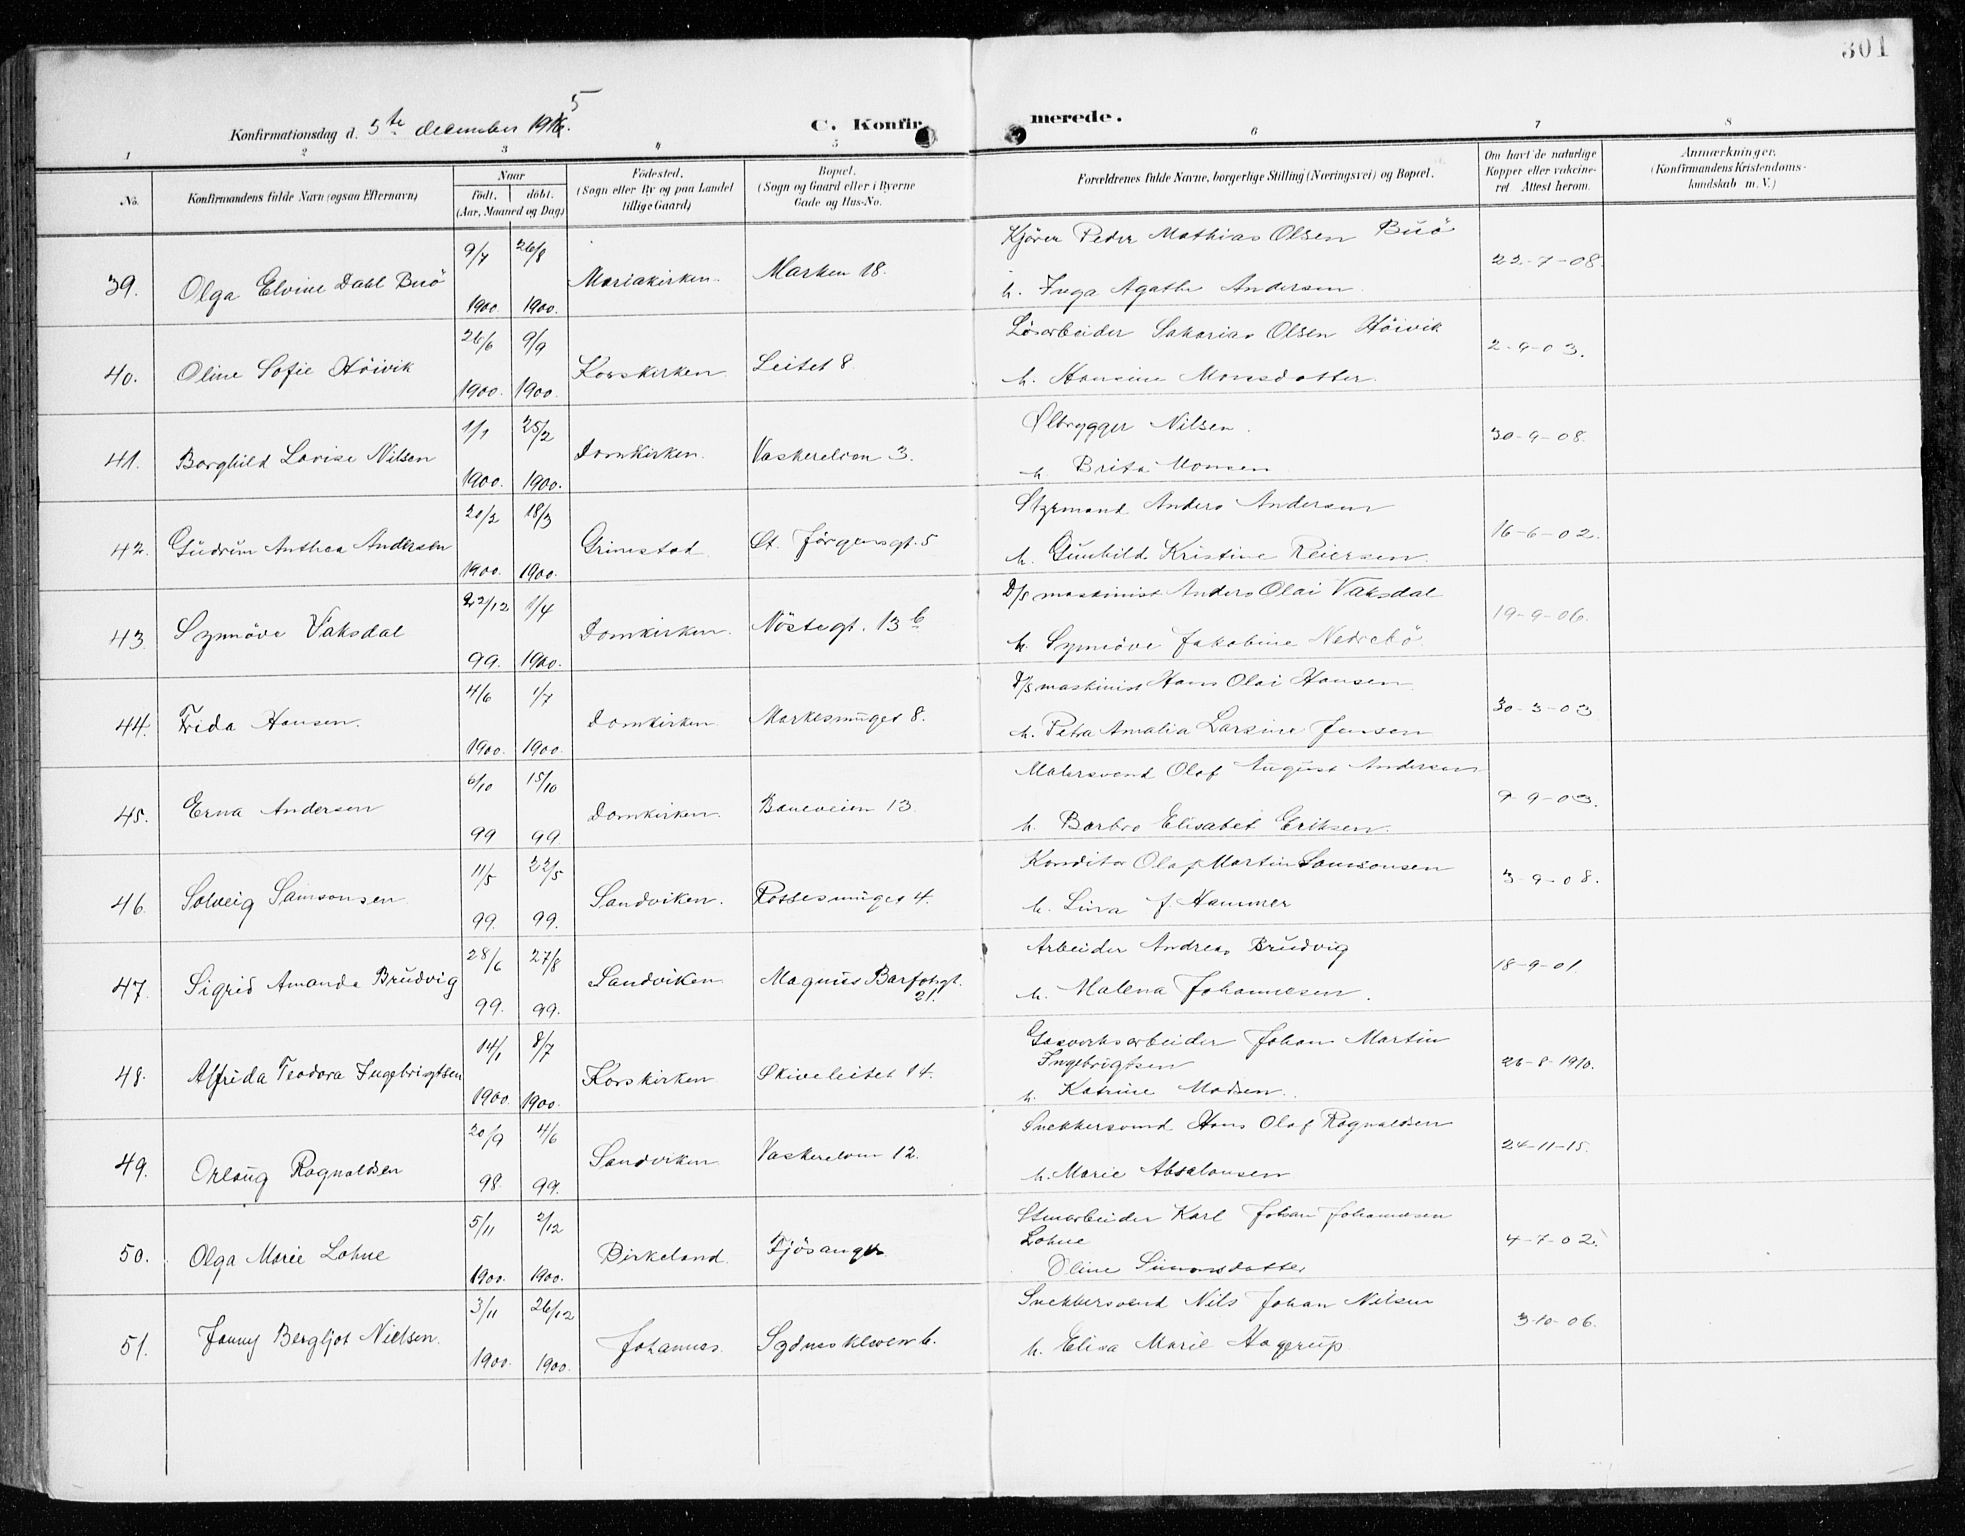 301
Konfirmationsdag d. 5te december 1915.
C. Konfirmerede.
1 2 3 4 5 6 7 8
No.
Konfirmandens fulde Navn (ogsaa Efternavn)
Naar
Født. døbt.
(Aar, Maaned og Dag)
Fødested.
(Sogn eller By og paa Landet
tillige Gaard)
Bopæl.
(Sogn og Gaard eller i Byerne
Gade og Hus-No.
Forældrenes fulde Navne, borgerlige Stilling (Næringsvei) og Bopæl.
Om havt de naturlige
Kopper eller vakcine-
ret. Attest herom.
Anmærkninger.
(Konfirmandens Kristendoms-
kundskab m. V.)
39. Olga Elvine Dahl Buö 9/7 1900. 26/8 1900. Mariakirken. Marken 18.
Kjører Peder Mathias Olsen Buö
h. Inga Agathe Andersen. 22-7-08.
40. Oline Sofie Höivik 26/6 1900. 9/9 1900. Korskirken Leitet 8.
Løsarbeider Sakarias Olsen Höivik
h. Hansine Monsdatter. 2-9-03.
41. Borghild Lovise Nilsen 1/1 1900. 25/2 1900. Domkirken. Vaskerelven 3.
Ølbrygger Nilsen.
h Brita Monsen 30-9-08.
42. Gudrun Anthea Andersen 20/2 1900. 18/3 1900. Grimestad St. Jörgensgt. 5
Styrmand Anders Andersen
h. Gunhild Kristine Reiersen. 16-6-02.
43. Synnöve Vaksdal 22/12 99. 1/4 1900. Domkirken. Nöstegt. 13 b
D/s maskinist Anders Olai Vaksdal
h. Synnöve Jakobine Nedrebö. 19-9-06.
44. Frida Hansen. 4/6 1900. 1/7 1900. Domkirken Markesmuget 8.
D/s maskinist Hans Olai Hansen.
h. Petra Amalia Larsine Jenson 30-3-03
45. Erna Andersen 6/10 99 15/10 99 Domkirken. Baneveien 13.
Malersvend Olaf August Andersen
h. Barbro Elisabet Eriksen. 9-9-03.
46. Solveig Samsonsen 11/5 99. 22/5 99. Sandviken. Rottesmuget 4.
Konditor Olaf Martin Samsonsen
h. Lina f. Hammer 3-9-08.
47. Sigrid Amanda Brudvig 28/6 99. 27/8 99. Sandviken Magnus Barfotsgt.
21.
Arbeider Andreas Brudvig
h. Malena Johannesen. 18-9-01.
48. Alfrida Teodora Ingebrigtsen 14/1 1900. 8/7 1900. Korskirken Skiveleitet 14.
Gasverksarbeider Johan Martin
Ingebrigtsen
h. Katrine Madsen. 26-8-1910.
49. Orlaug Ragnaldsen 20/9 98. 4/6 99. Sandviken Vaskerelven 12.
Snekkersvend Hans Olaf Ragnaldsen
h. Marie Absalonsen 24-11-15.
50. Olga Marie Lohne 5/11 1900. 2/12 1900. Birkeland Fjösanger
Stenarbeider Karl Johan Johannesen
Lohne
Oline Simonsdatter 4-7-02.
51. Jenny Bergljot Nielsen. 3/11 1900. 26/12 1900. Johannes. Sydnæskleven 6.
Snekkersvend Nils Johan Nilsen
h. Elisa Marie Hagerup. 3-10-06.